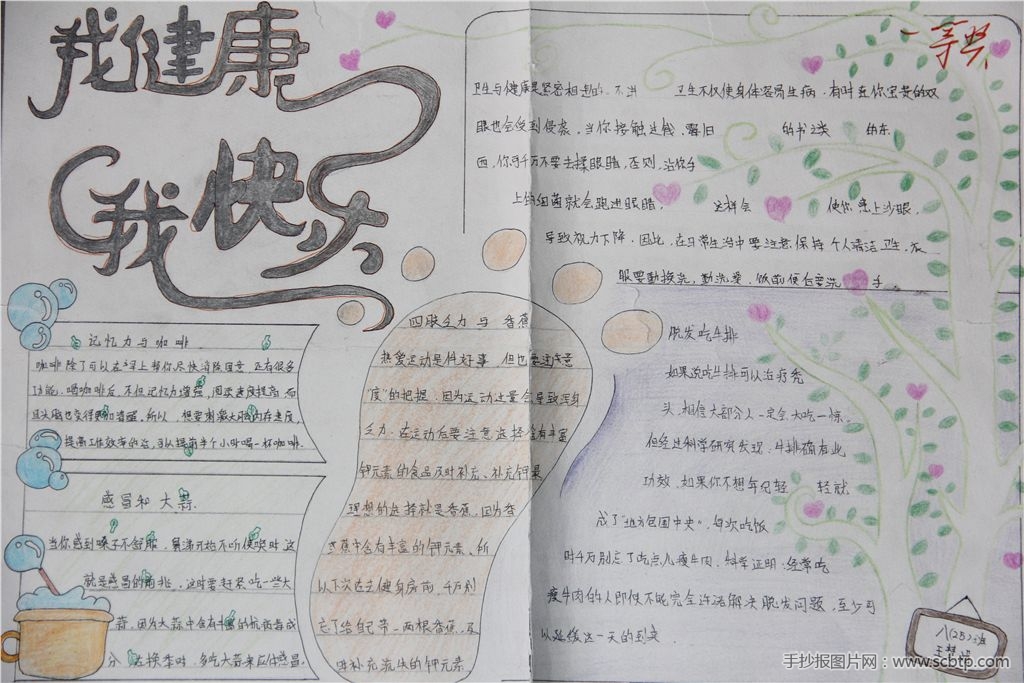 我健康
我快乐
一等奖
卫生与健康是紧密相连的. 不讲 卫生不仅使身体容易生病, 有时连你宝贵的双
眼也会受到侵袭, 当你接触过钱、 的书之类 的东
西, 你千万不要去揉眼睛, 否则, 沾你手
上的细菌就会跑进眼睛, 这样会 使你患上沙眼,
导致视力下降. 因此, 在日常生活中要注意保持个人清洁卫生, 衣
服要勤换洗, 勤洗澡, 饭前便后要洗手.
记忆力与咖啡
咖啡除了可以在 上帮你尽快消除困意, 还有很多
功能. 喝咖啡后, 不但记忆力增强, 阅读速度提高, 而
且头脑也变得更加清醒. 所以, 想要刺激大脑内存速度,
提高工作效率的话, 可以提前半个小时喝一杯咖啡.
感冒和大蒜
当你感到嗓子不舒服, 鼻涕开始不听使唤时 这
就是感冒的前兆. 这时要赶紧吃一些大
蒜, 因为大蒜中含有丰富的抗病毒成
分 换季时, 多吃大蒜来应付感冒.
四肢乏力与 香蕉
热爱运动是件好事, 但也要注意
“度”的把握. 因为运动过量会导致浑身
乏力. 在运动后要注意选择含有丰富
钾元素的食品及时补充、补充钾最
理想的选择就是香蕉, 因为香
香蕉中含有丰富的钾元素, 所
以下次在去健身房前, 千万别
忘了给自己带一两根香蕉, 及
时补充流失的钾元素.
脱发吃牛排
如果说吃牛排可以治疗秃
头, 相信大部分人一定会大吃一惊.
但经过科学研究发现, 牛排确有此
功效. 如果你不想年纪轻 轻就
成了“地方包围中央”, 每次吃饭
时千万别忘了吃点儿瘦牛肉. 科学证明, 经常吃
瘦牛肉的人即使不能完全许诺解决脱发问题, 至少可
以延缓这一天的到来.
八(25)班
手抄报图片网：www.scbtp.com